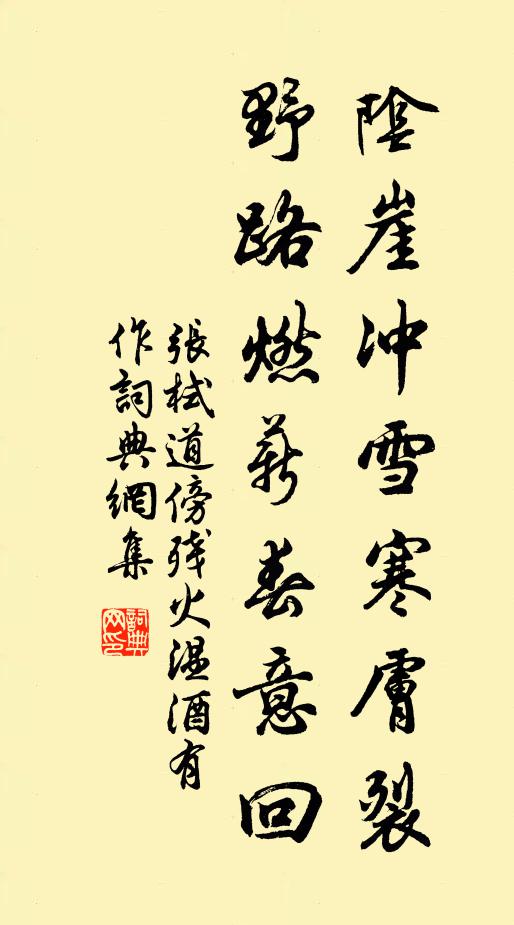 陰崖冲雪寒膚裂
野路燃薪春意回
張栻道傍殘火溫酒有
作詞典網集
詞典網印